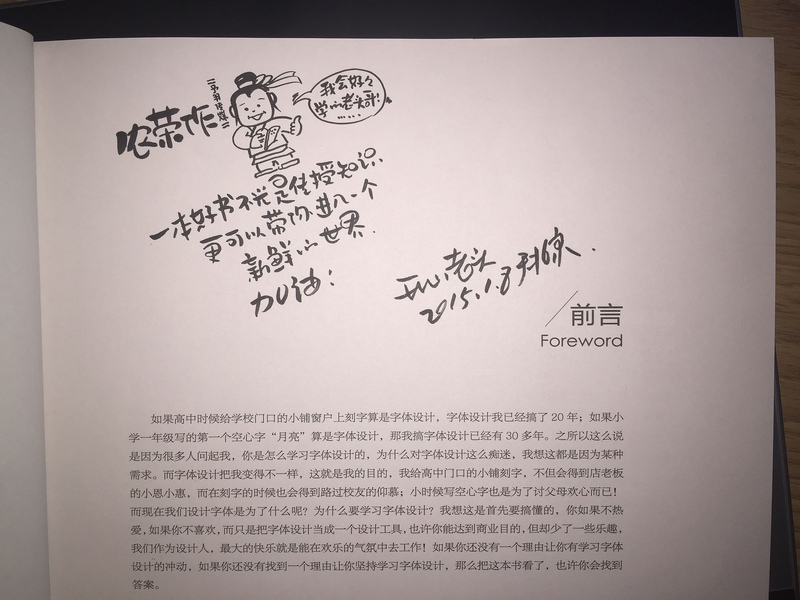 农荣作
我会好々
学心老头哥！
……
一本好书不光是传授知识
更可以带你进入一个
新鲜的世界.
加油！
老头
2015.1.8
前言
Foreword
如果高中时候给学校门口的小铺窗户上刻字算是字体设计，字体设计我已经搞了 20 年；如果小
学一年级写的第一个空心字“月亮”算是字体设计，那我搞字体设计已经有 30 多年。之所以这么说
是因为很多人问起我，你是怎么学习字体设计的，为什么对字体设计这么痴迷，我想这都是因为某种
需求。而字体设计把我变得不一样，这就是我的目的，我给高中门口的小铺刻字，不但会得到店老板
的小恩小惠，而在刻字的时候也会得到路过校友的仰慕；小时候写空心字也是为了讨父母欢心而已！
而现在我们设计字体是为了什么呢？为什么要学习字体设计？我想这是首先要搞懂的，你如果不热
爱，如果你不喜欢，而只是把字体设计当成一个设计工具，也许你能达到商业目的，但却少了一些乐趣，
我们作为设计人，最大的快乐就是能在欢乐的气氛中去工作！如果你还没有一个理由让你有学习字体
设计的冲动，如果你还没有找到一个理由让你坚持学习字体设计，那么把这本书看了，也许你会找到
答案。